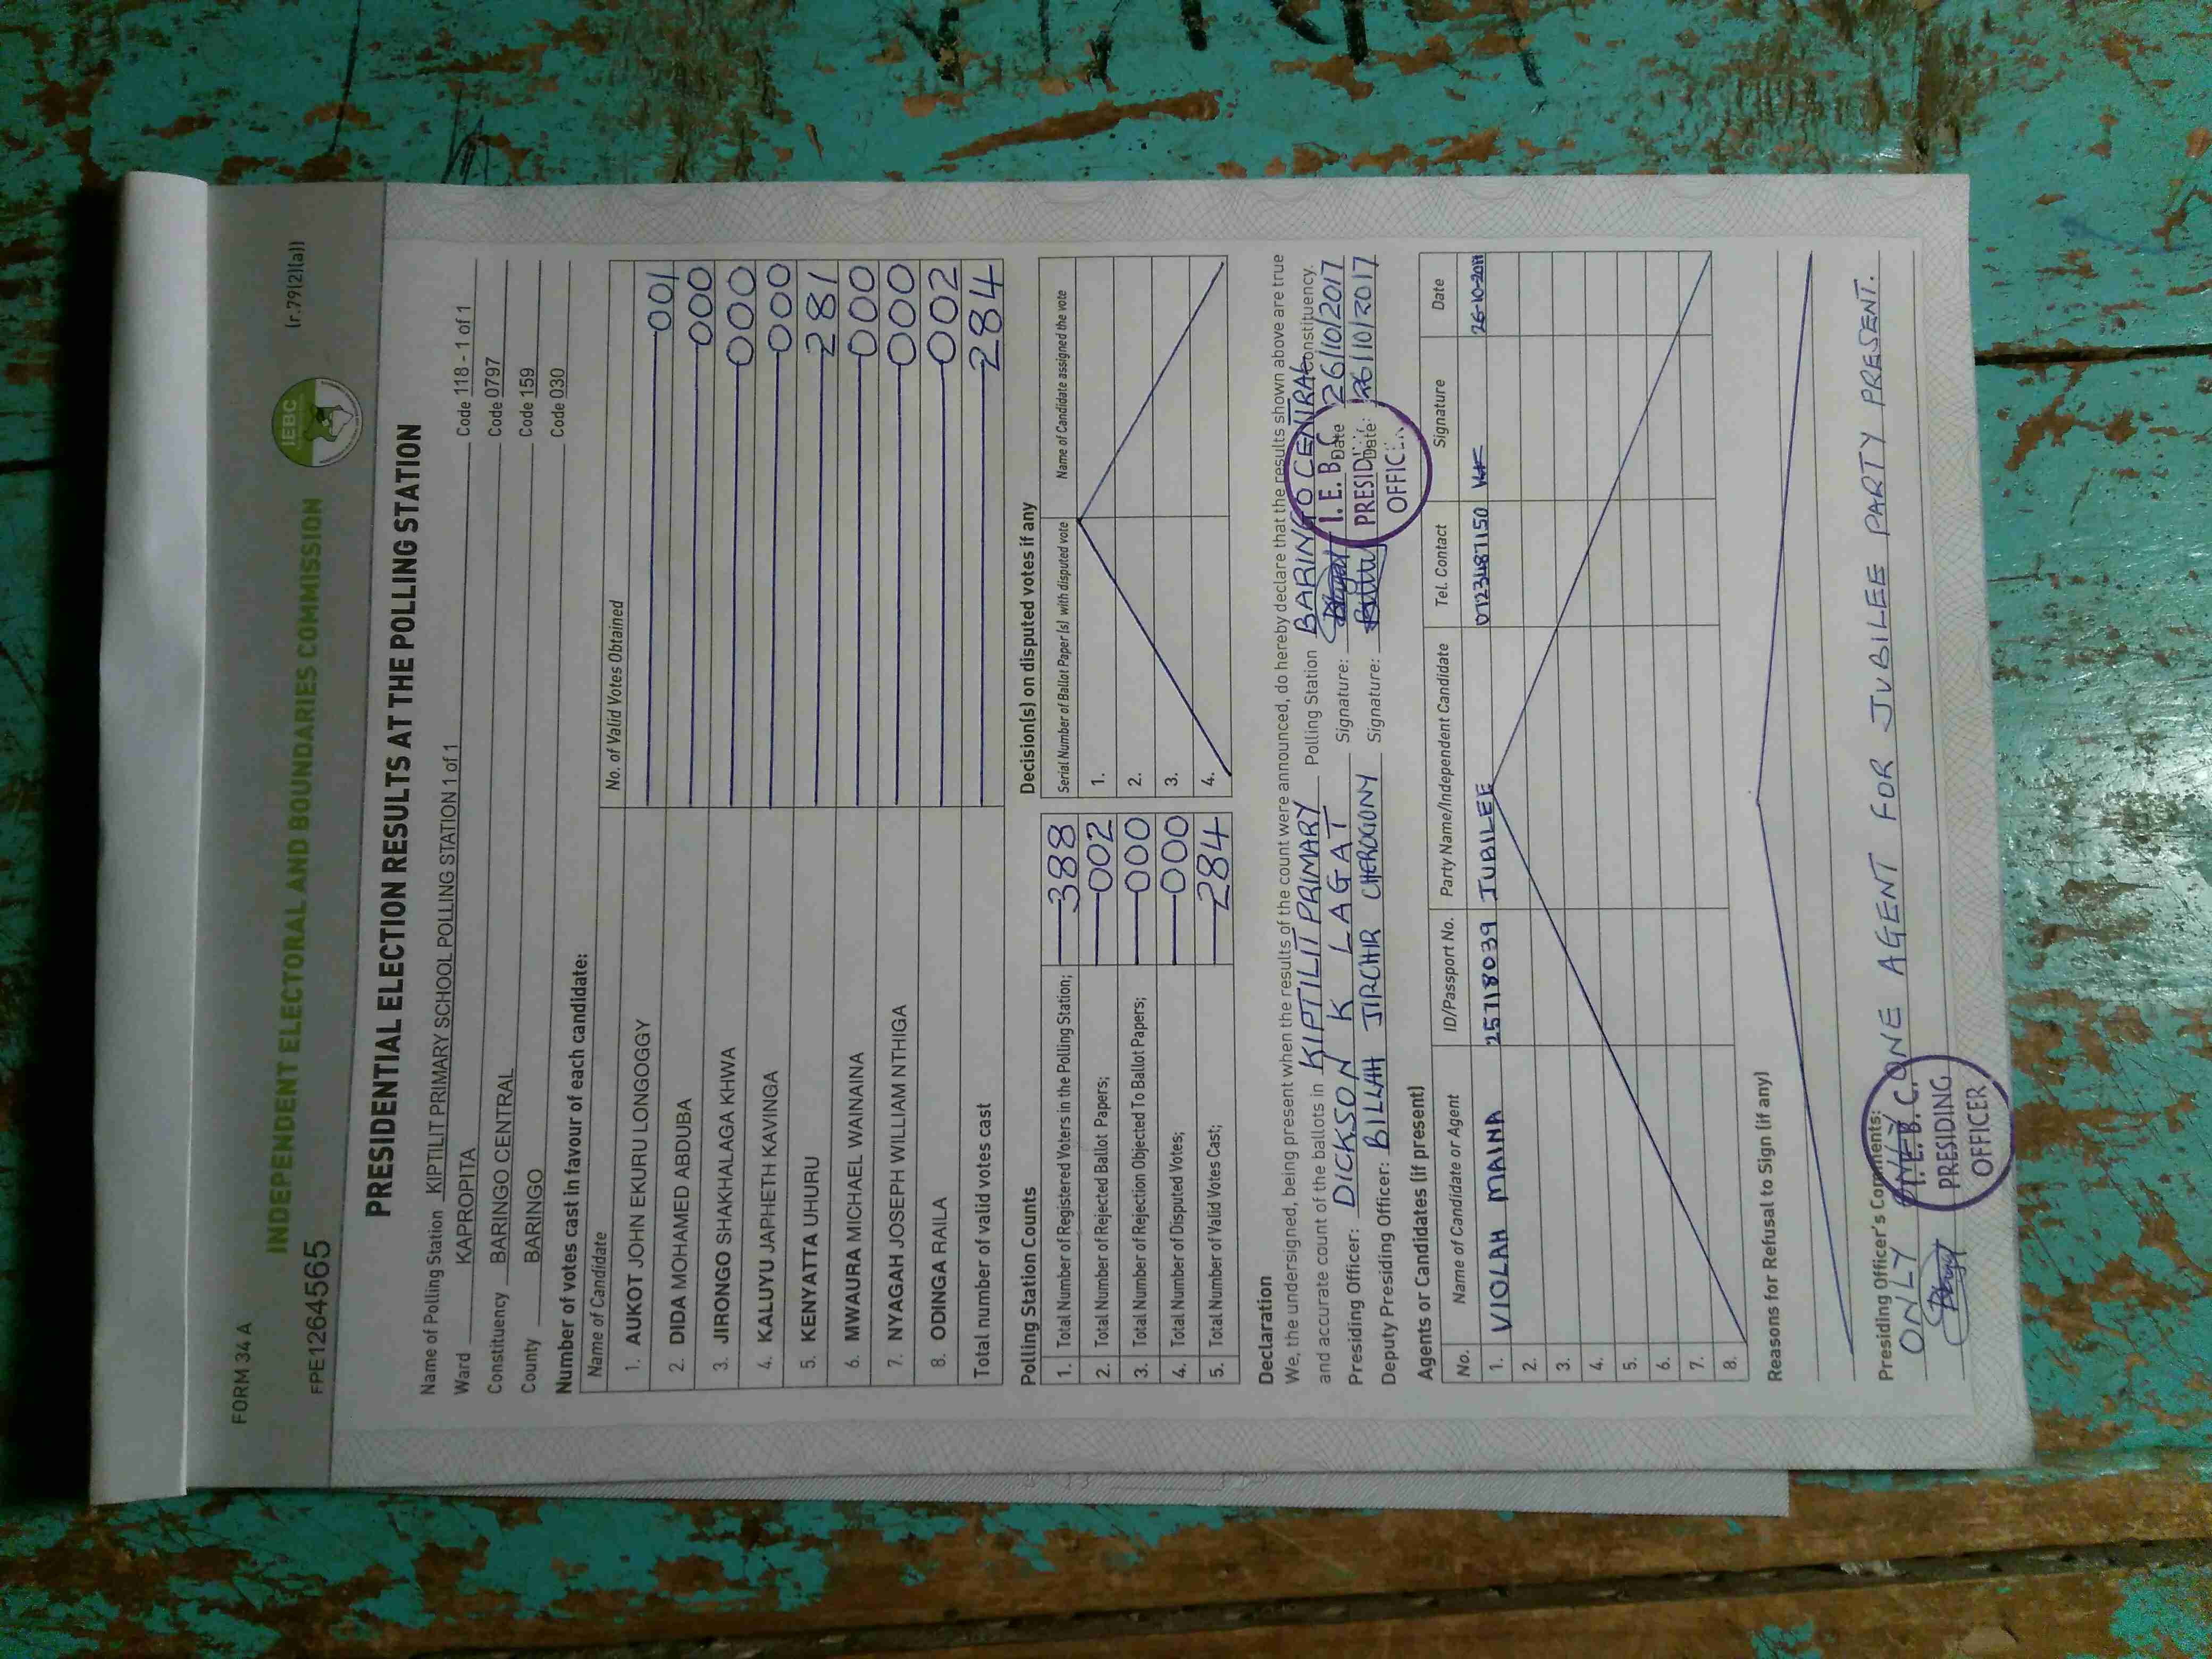 FORM 34 A
(r.79(2)(a))
INDEPENDENT ELECTORAL AND BOUNDARIES COMMISSION
IEBC
FPE1264565
PRESIDENTIAL ELECTION RESULTS AT THE POLLING STATION
Name of Polling Station KIPTILIT PRIMARY SCHOOL POLLING STATION 1 of 1 Code 118 - 1 of 1
Ward KAPROPITA Code 0797
Constituency BARINGO CENTRAL Code 159
County BARINGO Code 030
Number of votes cast in favour of each candidate:
Name of Candidate No. of Valid Votes Obtained
1. AUKOT JOHN EKURU LONGOGGY 001
2. DIDA MOHAMED ABDUBA 000
3. JIRONGO SHAKHALAGA KHWA 000
4. KALUYU JAPHETH KAVINGA 000
5. KENYATTA UHURU 281
6. MWAURA MICHAEL WAINAINA 000
7. NYAGAH JOSEPH WILLIAM NTHIGA 000
8. ODINGA RAILA 002
Total number of valid votes cast 284
Polling Station Counts
1. Total Number of Registered Voters in the Polling Station; 388
2. Total Number of Rejected Ballot Papers; 002
3. Total Number of Rejection Objected To Ballot Papers; 000
4. Total Number of Disputed Votes; 000
5. Total Number of Valid Votes Cast; 284
Decision(s) on disputed votes if any
Serial Number of Ballot Paper (s) with disputed vote Name of Candidate assigned the vote
1.
2.
3.
4.
Declaration
We, the undersigned, being present when the results of the count were announced, do hereby declare that the results shown above are true
and accurate count of the ballots in KIPTILIT PRIMARY Polling Station BARINGO CENTRAL Constituency.
Presiding Officer: DICKSON K LAGAT Signature: Date 26/10/2017
Deputy Presiding Officer: BILLAH JIRCHIR CHEROGONY Signature: Date: 26/10/2017
I. E. B. C
PRESIDING
OFFICER
Agents or Candidates (if present)
No. Name of Candidate or Agent ID/Passport No. Party Name/Independent Candidate Tel. Contact Signature Date
1. VIOLAH MAINA 25718039 JUBILEE 0723487150 26-10-2017
2.
3.
4.
5.
6.
7.
8.
Reasons for Refusal to Sign (if any)
Presiding Officer's Comments:
ONLY ONE AGENT FOR JUBILEE PARTY PRESENT.
I.E.B.C.
PRESIDING
OFFICER